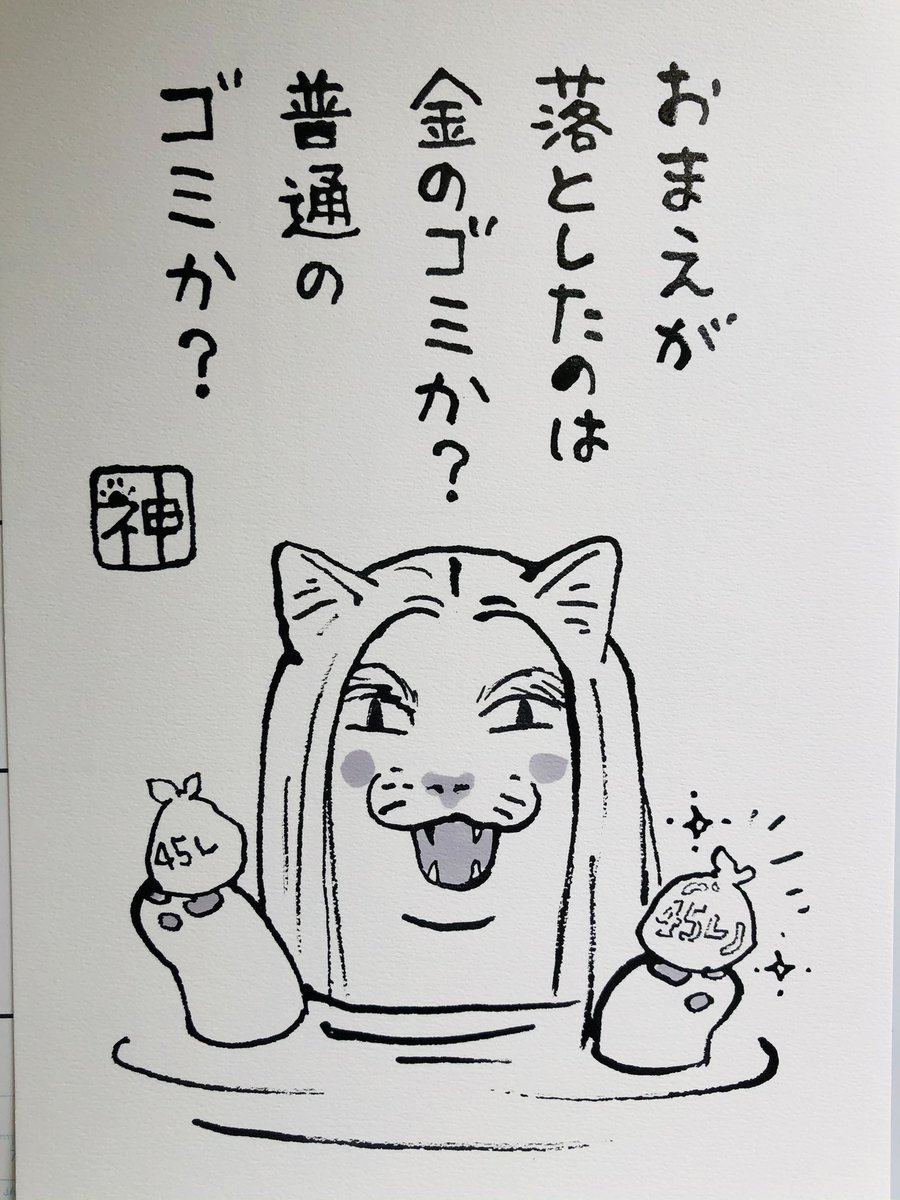 おまえが
落としたのは
金のゴミか？
普通の
ゴミか？
神
45L
45L